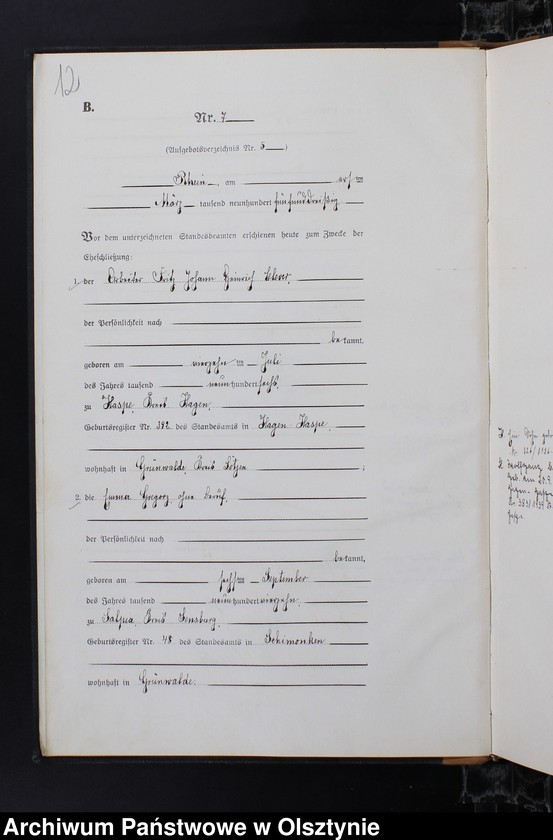 12
B.
Nr. 7
(Aufgebotsverzeichnis Nr. 5)
Rhein, am elften
März tausend neunhundert fünfunddreißig
Vor dem unterzeichneten Standesbeamten erschienen heute zum Zwecke der
Eheschließung:
1. der Arbeiter Fritz Johann Heinrich Klever,
der Persönlichkeit nach
bekannt,
geboren am vierzehnten Juli
des Jahres tausend neunhundert sechs,
zu Haspe, Kreis Hagen,
Geburtsregister Nr. 392 des Standesamts in Hagen Haspe,
wohnhaft in Grünwalde, Kreis Lötzen;
2. die Emma Gregorz, ohne Beruf,
der Persönlichkeit nach
bekannt,
geboren am sechsten September
des Jahres tausend neunhundert vierzehn,
zu Salpia, Kreis Sensburg,
Geburtsregister Nr. 48 des Standesamts in Schimonken
wohnhaft in Grünwalde.
Archiwum Państwowe w Olsztynie